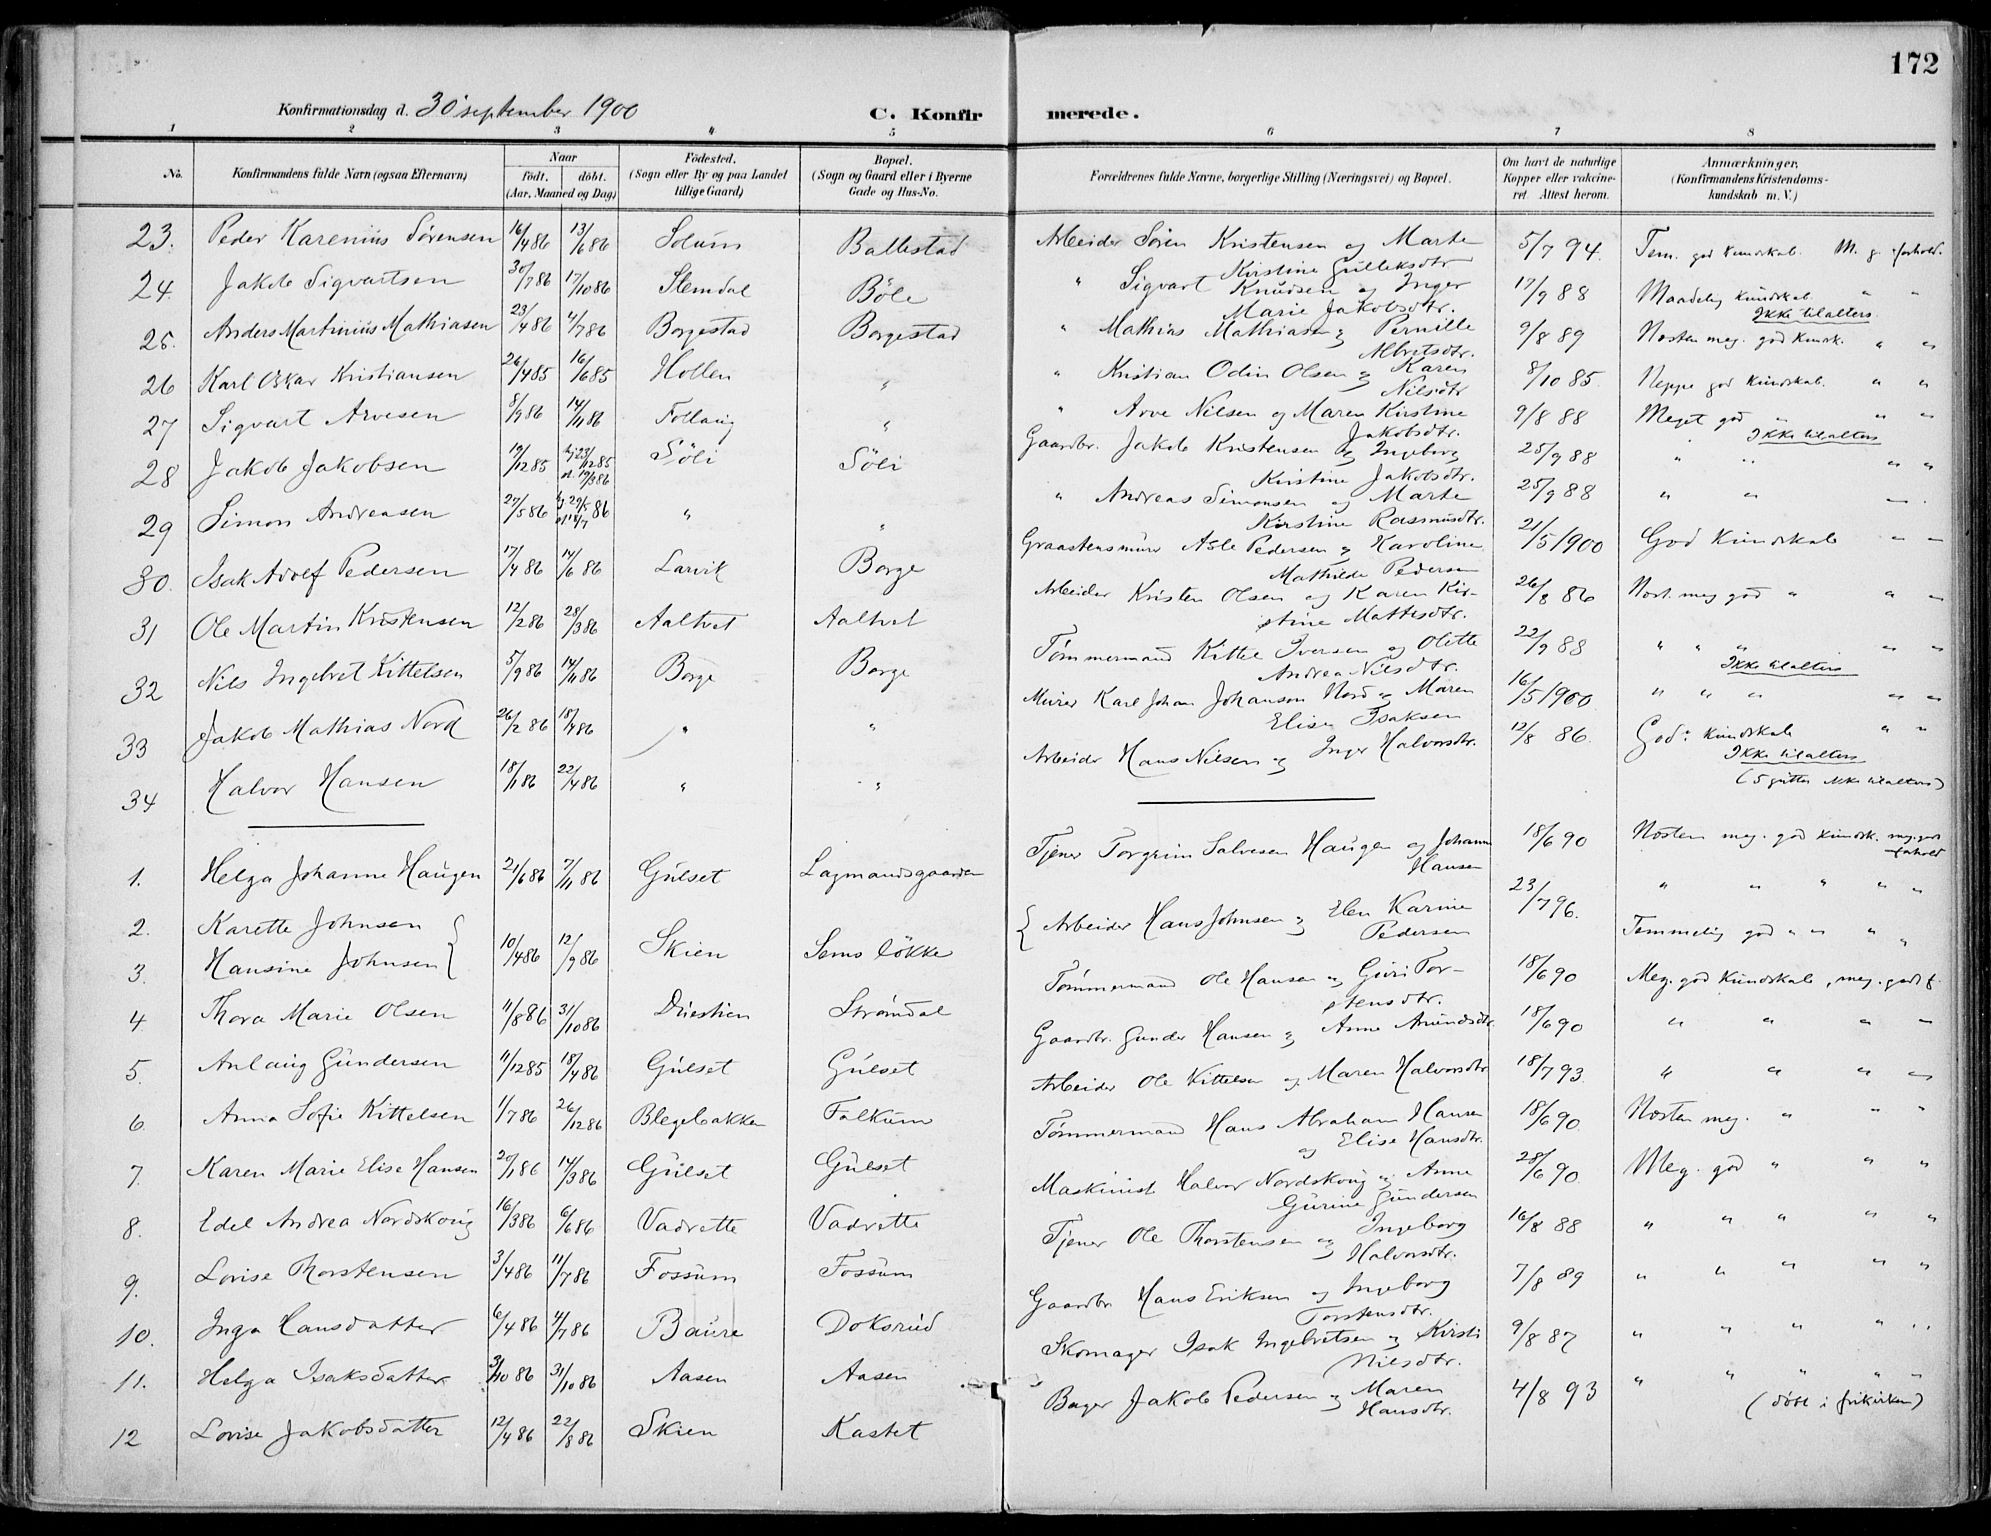 172
Konfirmationsdag d. 30 september 1900
C. Konfirmerede.
1 2 3 4 5 6 7 8
No. Konfirmandens fulde Navn (ogsaa Efternavn) Naar født. døbt. (Aar, Maaned og Dag) Fødested. (Sogn eller By og paa Landet tillige Gaard) Bopæl. (Sogn og Gaard eller i Byerne Gade og Hus-No. Forældrenes fulde Navne, borgerlige Stilling (Næringsvei) og Bopæl. Om havt de naturlige Kopper eller vakcineret. Attest herom. Anmærkninger. (Konfirmandens Kristendomskundskab m. V.)
23. Peder Karenius Sørensen 16/4 86 13/6 86 Solum Ballestad Arbeider Søren Kristensen og Marte Kirstine Gulleksdtr 5/7 94. Tem. god kundskab. M. g. forhold.
24 Jakob Sigvartsen 30/7 86 17/10 86 Slemdal Böle " Sigvart Knudsen og Inger Marie Jakobsdtr. 17/9 88 Maadelig kundskab " " Ikke tilalters
25. Anders Martinius Mathiasen 23/4 86 4/7 86 Borgestad Borgestad " Mathias Mathiasen og Pernille Albretsdtr. 9/8 89 Næsten meg. god kundsk. " "
26 Karl Oskar Kristiansen 26/4 85 16/6 85 Hollen " " Kristian Odin Olsen og Karen Nilsdtr 8/10 85. Neppe god kundskab. " "
27 Sigvart Arvesen 8/9 86 14/11 86 Follaug " " Arve Nilsen og Maren Kirstine Jakobsdtr. 9/8 88 Meget god " " " Ikke tilalters
28 Jakob Jakobsen 19/12 85 hj 23/12 85 st. 19/3 86 Söli Söli Gaardbr. Jakob Kristensen og Ingeborg Kirstine Jakobsdtr. 25/9 88 " " " "
29 Simon Andreasen 27/5 86 hj 29/5 86 " " " Andreas Simonsen og Marte Kirstine Rasmusdtr. 25/9 88 " " "
30. Isak Adolf Pedersen 17/4 86 14/6 86 Larvik Borge Graastensmurer Asle Pedersen og Karoline Mathilde Pedersen 21/5 1900 God kundskab " "
31 Ole Martin Kristensen 12/2 86 28/3 86 Aaltvet Aaltvet Arbeider Kristen Olsen og Karen Kirstine Mattisdtr. 26/8 86 Næst. meg god " " "
32 Nils Ingebret Kittelsen 5/9 86 14/11 86 Borge Borge Tømmermand Kittil Iversen og Olette Andrea Nilsdtr. 22/9 88 " " " " " Ikke tilalters
33 Jakob Mathias Nord 26/2 86 18/4 86 " " Murer Karl Johan Johanson Nord og Maren Elise Isaksen 16/5 1900 " " " " "
34 Halvor Hansen 18/1 86 22/4 86 " " Arbeider Hans Nilsen og Inger Halvorsdtr. 12/8 86. God kundskab " " Ikke tilalters
(5 gutter ikke tilalters)
1. Helga Johanne Haugen 21/6 86 7/11 86 Gulset Lagmandsgaarden Tjener Torgrim Salvesen Haugen og Johanne Hansen 18/6 90 Næsten meg. god kundsk. meg. godt forhold
2. Karette Johnsen
3. Hansine Johnsen 10/4 86 12/9 86 Skien Sems løkke Arbeider Hans Johnsen og Elen Karine Pedersen 23/7 96. " " " " " Temmelig god " " " "
4 Thora Marie Olsen 11/8 86 31/10 86 Strømdal Tømmermand Ole Hansen og Guri Torstensdtr. 18/6 90 Meg. god kundskab, meg. godt f.
5. Anlaug Gundersen 11/12 85 18/4 86 Gulset Gulset Gaardbr. Gunder Hansen og Anne Amundsdtr. 18/6 90 " " " "
6. Anna Sofie Kittelsen 1/7 86 26/12 86 Blegebakken Falkum Arbeider Ole Kittelsen og Maren Halvorsdtr 18/7 93. " " " "
7. Karen Marie Elise Hansen 20/1 86 14/3 86 Gulset Gulset Tømmermand Hans Abraham Hansen og Elise Hansdtr. 18/6 90. Næsten meg. " " "
8. Edel Andrea Nordskoug 16/3 86 6/6 86 Vadrette Vadrette Maskinist Halvor Nordskoug og Anne Gurine Gundersen 28/6 90. Meg. god " " "
9. Lovise Thorstensen 3/4 86 11/7 86 Fossum Fossum Tjener Ole Thorstensen og Ingeborg Halvorsdtr. 16/8 88 " " " " "
10. Inga Hansdatter 6/4 86 4/7 86 Baure Doksrud Gaardbr Hans Eriksen og Ingeborg Torstensdtr. 7/8 89 " " " " "
11. Helga Isaksdatter 3/10 86 31/10 86 Aasen Aasen Skomager Isak Ingebretsen og Kirsti Nilsdtr. 9/8 87 " " " " "
12 Lovise Jakobsdatter 12/4 86 22/8 86 Skien Kastet Bager Jakob Pedersen og Maren Hansdtr. 4/8 93 " " " " " (döbt i frikirken)